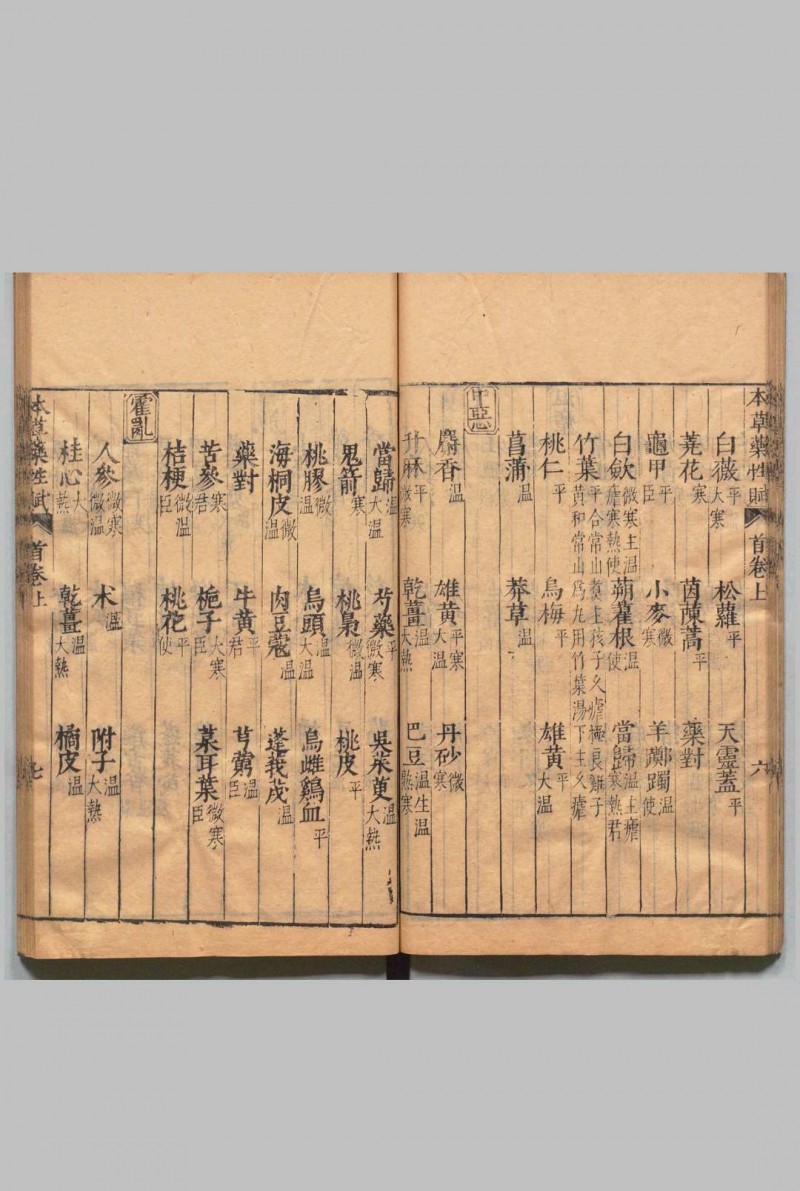 本草藥性賦 首卷上 六
白薇平大寒 松蘿平 天靈蓋平
蕘花寒 茵蔯蒿平 藥對
龜甲平臣 小麥微寒 羊躑躅温使
白歛微寒主温瘧寒熱使 蒴藋根温使 當歸温主瘧寒熱君
竹葉平合常山煑主孩子久瘧極良雞子黃和常山爲丸用竹葉湯下主久瘧
桃仁平 烏梅平 雄黃平大温
菖蒲温 莽草温
中惡
麝香温 雄黃平寒大温 丹砂微寒
升麻平微寒 乾薑温大熱 巴豆温生温熟寒
當歸温大温 芍藥平微寒 吳茱萸温大熱
鬼箭寒 桃梟微温 桃皮平
桃膠微温 烏頭温大温 烏雌鷄血平
海桐皮微温 肉豆蔻温 蓬莪茂温
藥對 牛黃平君 芎藭温臣
苦參寒君 梔子大寒臣 菜耳葉微寒臣
桔梗微温臣 桃花平使
霍亂
人參微寒微温 术温 附子温大熱
桂心大熱 乾薑温大熱 橘皮温
本草藥性賦 首卷上 七